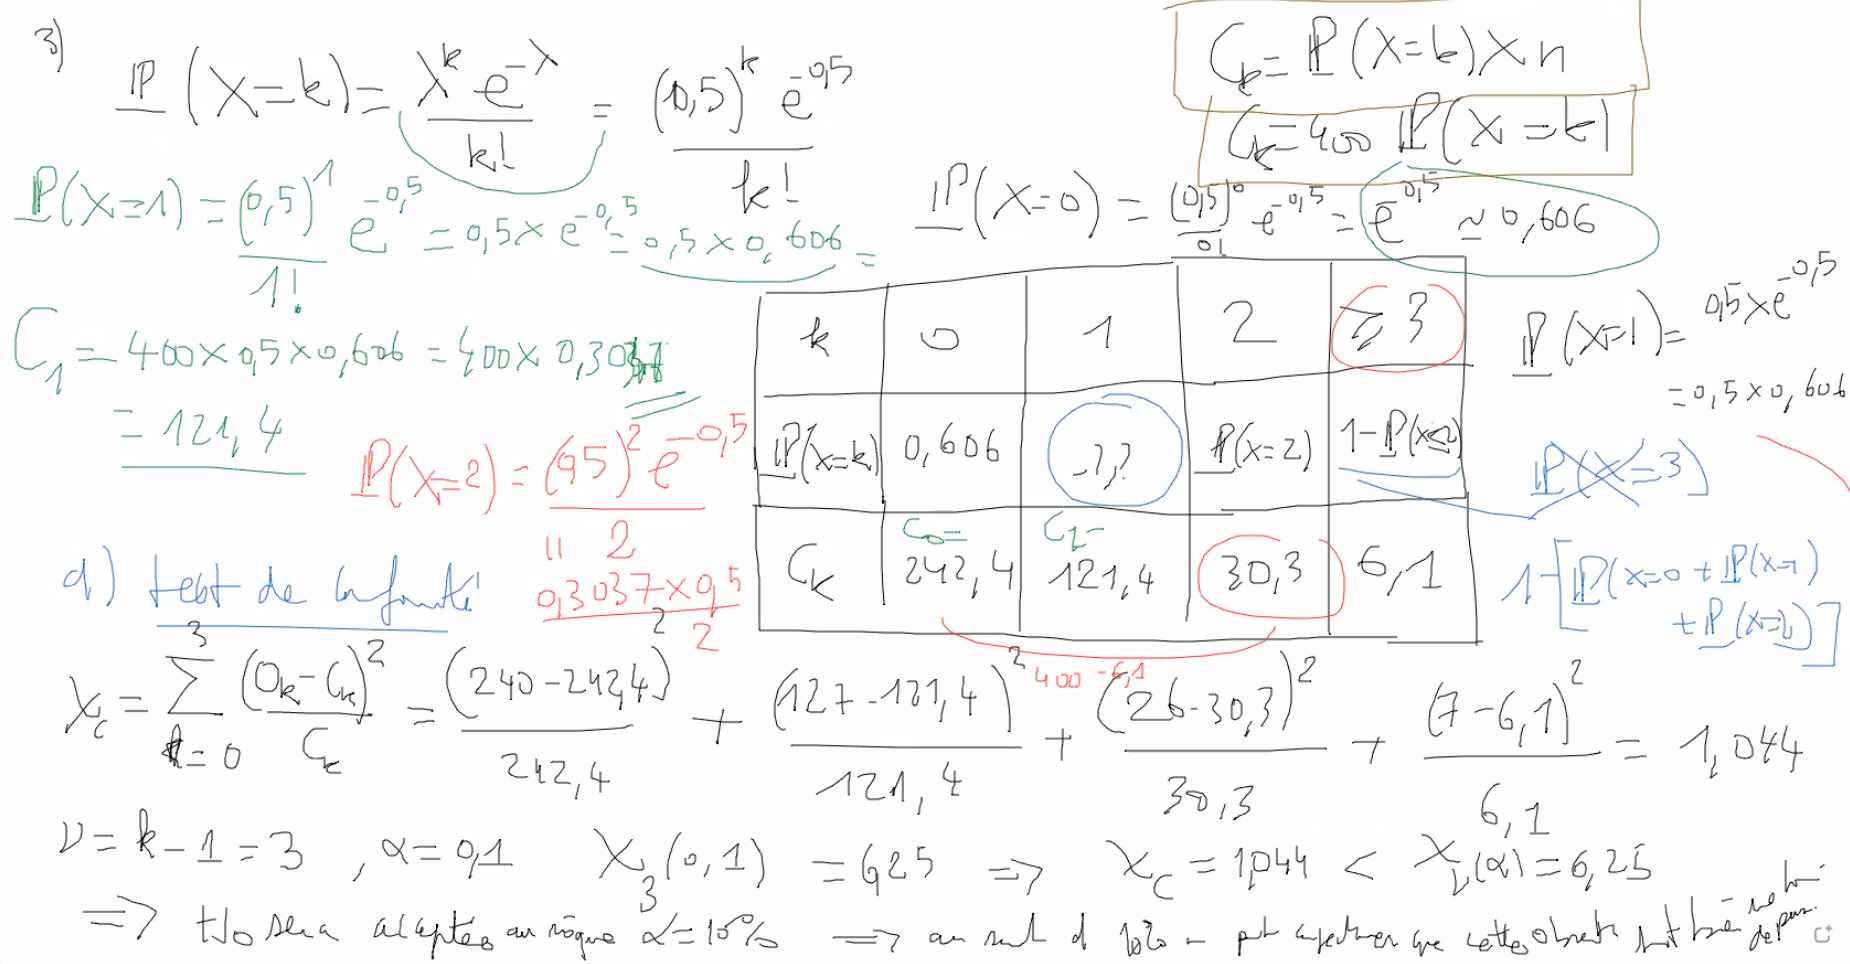 3)
ℙ(X=k) = λ^k e^-λ / k! = (0,5)^k e^-0,5 / k!
C_k = ℙ(X=k) × n
C_k = 400 ℙ(X=k)
ℙ(X=1) = (0,5)^1 / 1! e^-0,5 = 0,5 × e^-0,5 = 0,5 × 0,606 =
ℙ(X=0) = (0,5)^0 / 0! e^-0,5 = e^-0,5 ≃ 0,606
C_1 = 400 × 0,5 × 0,606 = 400 × 0,30
= 121,4
ℙ(X=2) = (0,5)^2 e^-0,5 / 2
= 0,3037 × 0,5 / 2
k 0 1 2 ≥ 3
ℙ(X=k) 0,606 ?,? ℙ(X=2) 1-ℙ(X≤2)
C_0= C_1=
C_k 242,4 121,4 30,3 6,1
400 - 6,1
ℙ(X=1) = 0,5 × e^-0,5
= 0,5 × 0,606
ℙ(X=3)
1-[ℙ(X=0 + ℙ(X=1)
+ ℙ(X=2)]
d) test de conformité
χ_c = Σ_{k=0}^{3} (O_k - C_k)^2 / C_k = (240-242,4)^2 / 242,4 + (127-121,4)^2 / 121,4 + (26-30,3)^2 / 30,3 + (7-6,1)^2 / 6,1 = 1,044
ν = k - 1 = 3 , α = 0,1 χ_3(0,1) = 6,25 ⇒ χ_c = 1,044 < χ_ν(α) = 6,25
⇒ Ho sera acceptée au risque α = 10% ⇒ au seuil d 10% on peut que cette